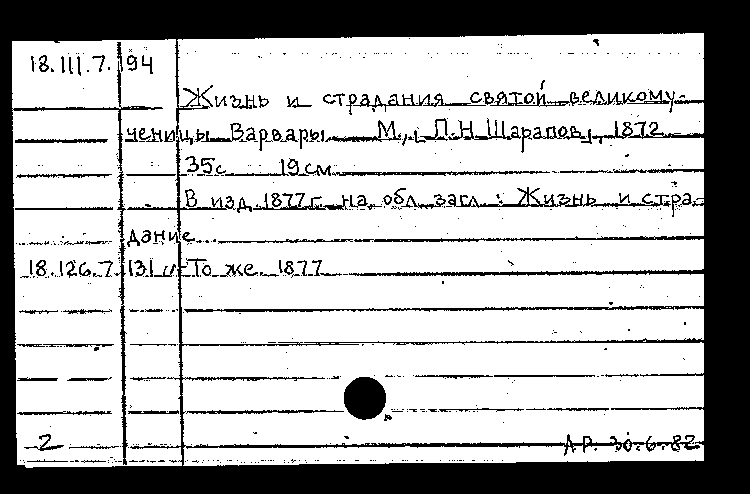 18.III.7.194
Жизнь и страдания святой великому-
ченицы Варвары М., П.Н Шарапов, 1872
35с 19см
В изд. 1877г. на обл. загл.: Жизнь и стра-
дание...
18.126.7.131 То же. 1877
2 АР. 30.6.82